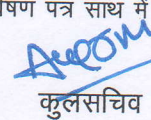 षण पत्र साथ में
कुलसचिव